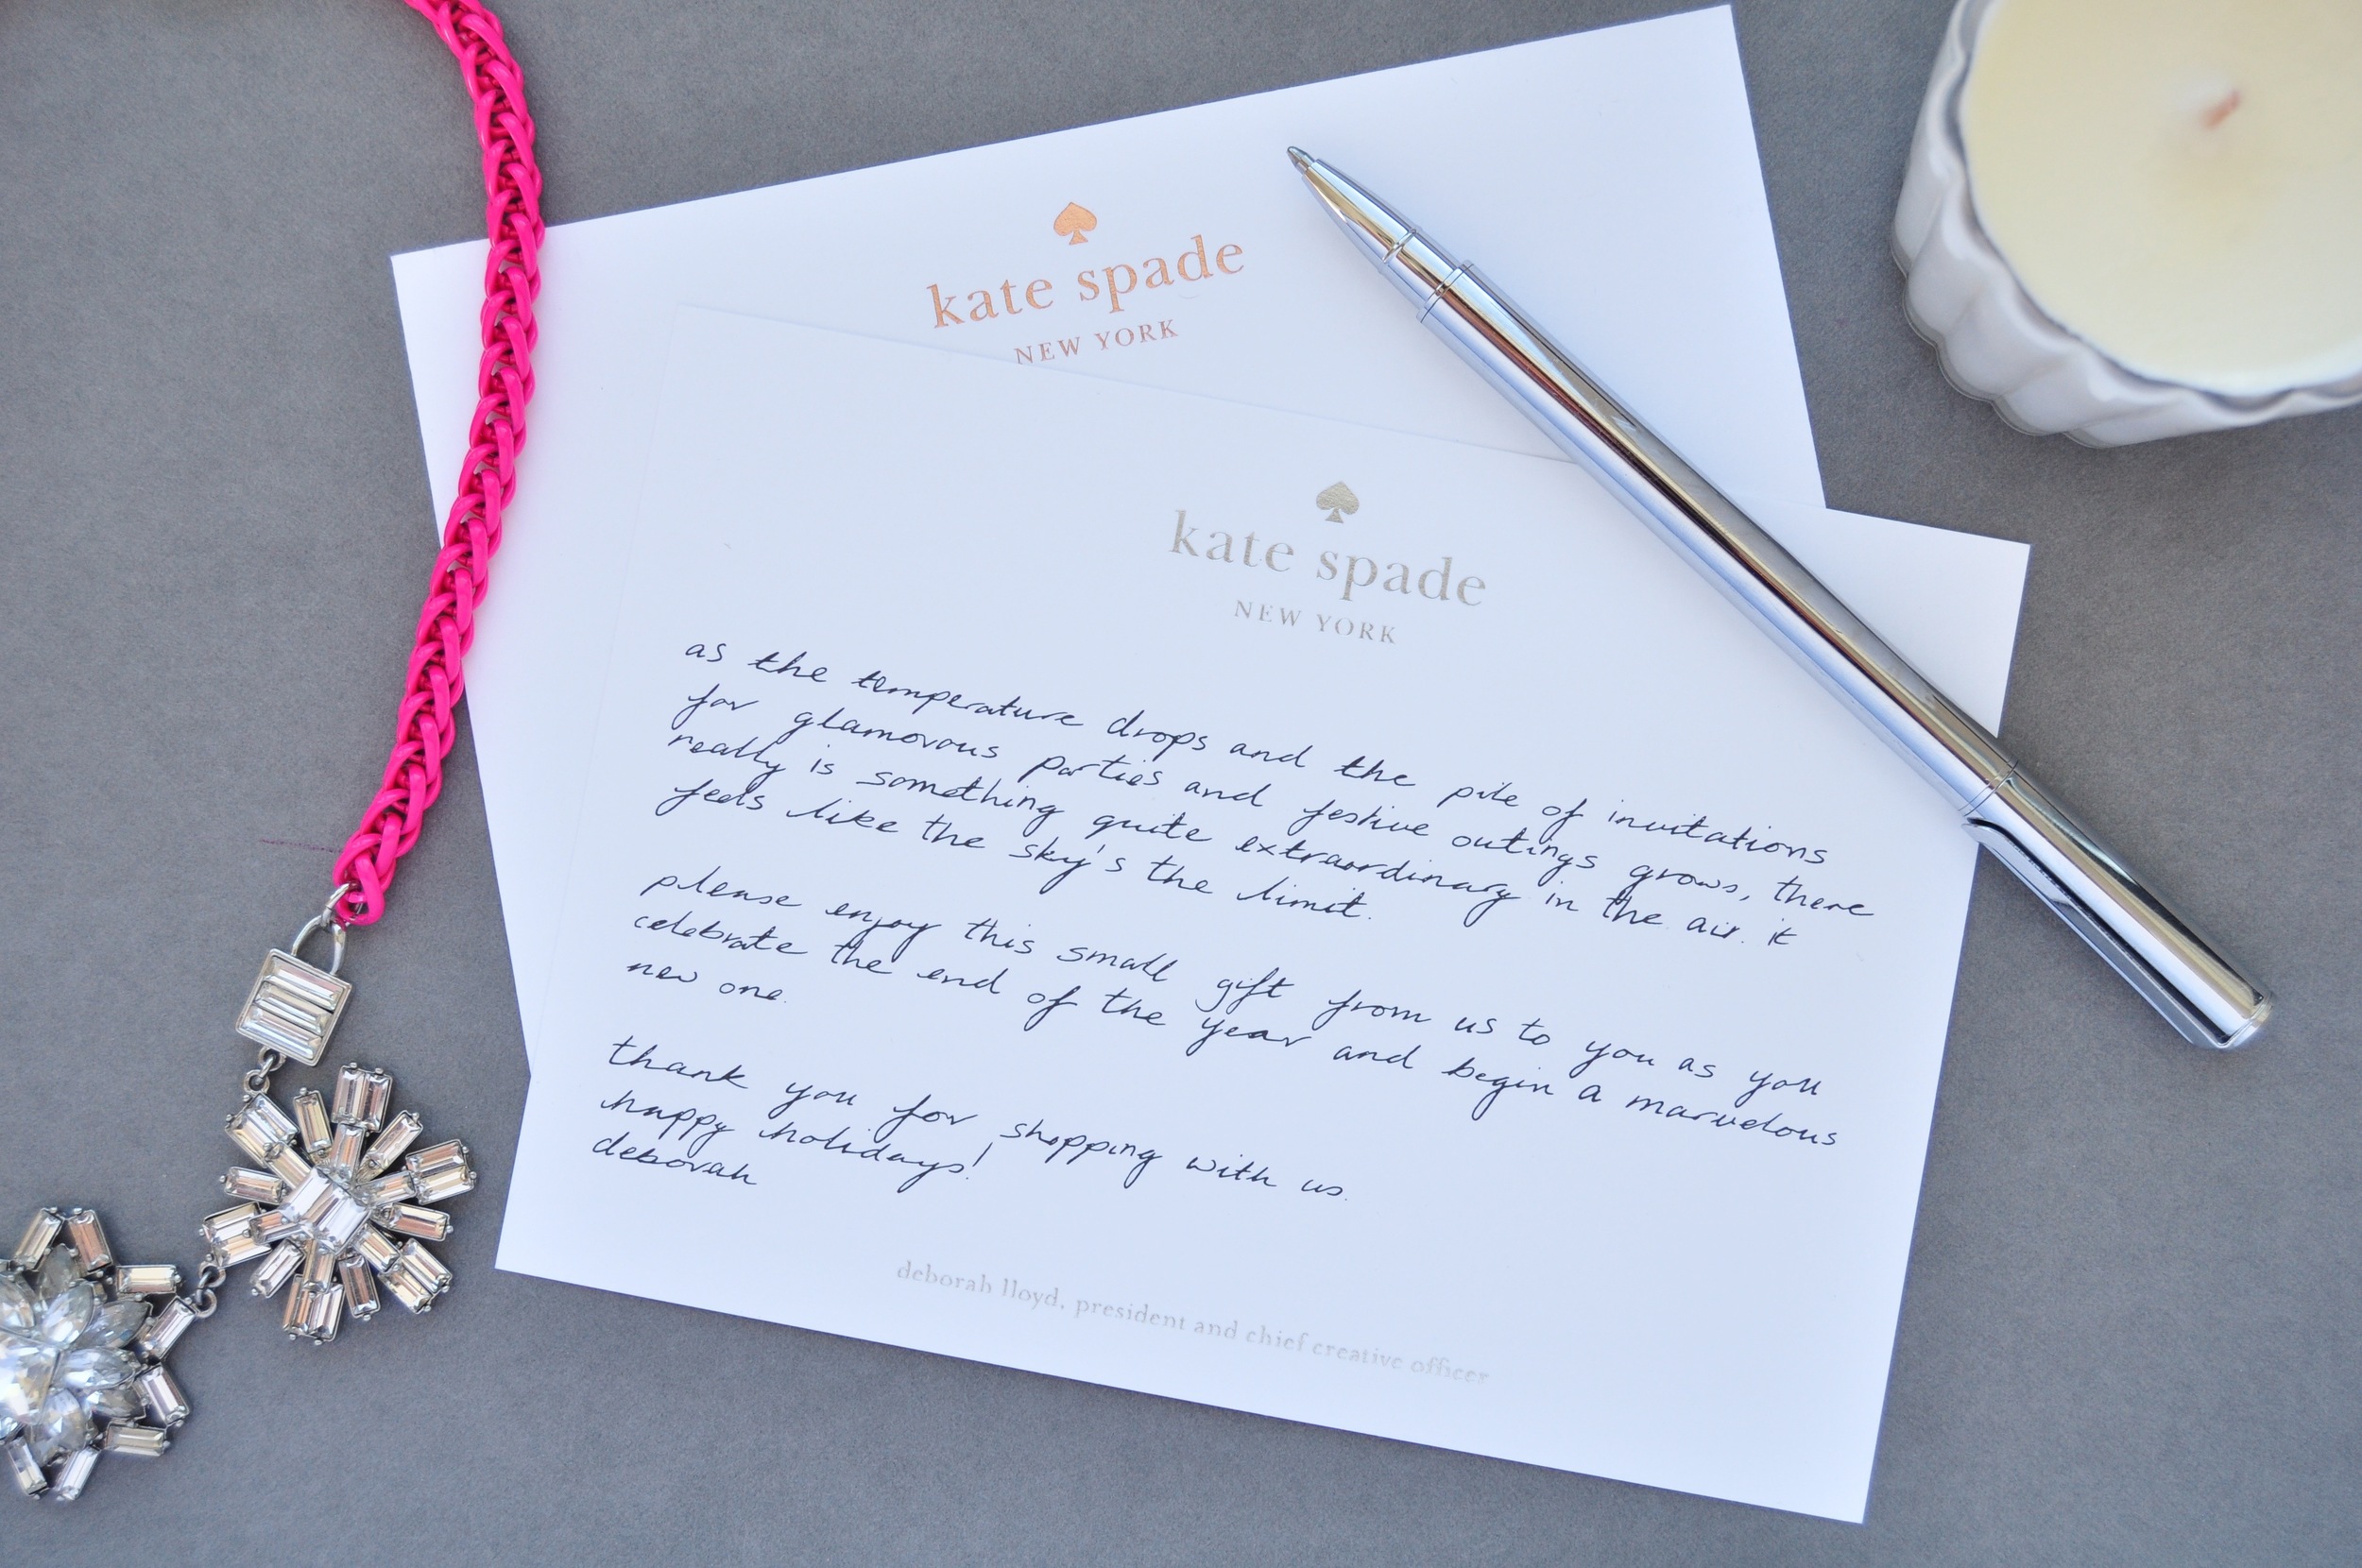 kate spade
NEW YORK
kate spade
NEW YORK
as the temperature drops and the pile of invitations
for glamorous parties and festive outings grows, there
really is something quite extraordinary in the air. it
feels like the sky's the limit.
please enjoy this small gift from us to you as you
celebrate the end of the year and begin a marvelous
new one.
thank you for shopping with us.
happy holidays!
deborah
deborah lloyd, president and chief creative officer